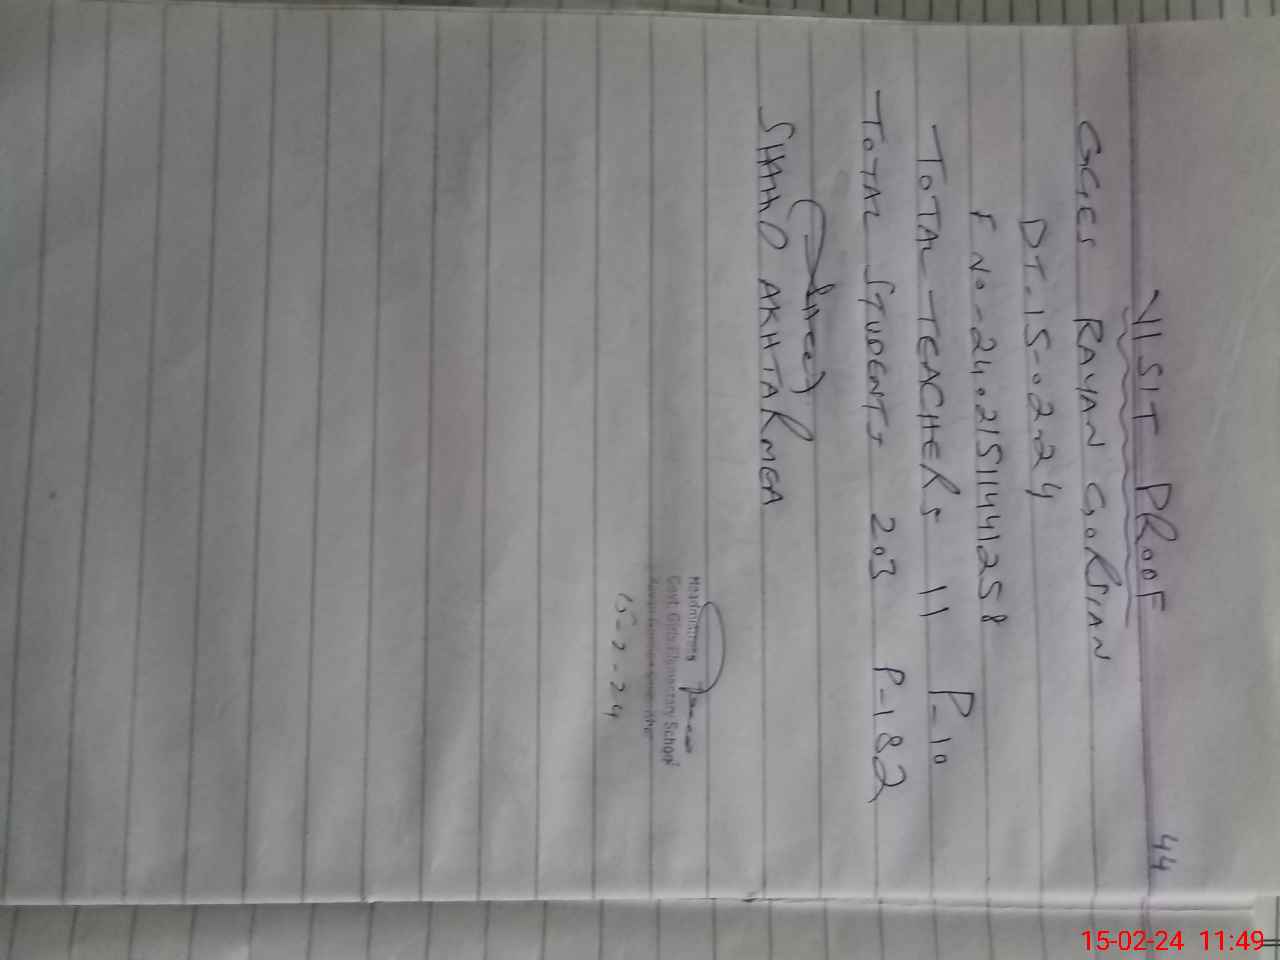 44
VISIT PROOF
GGES RAYAN GORSIAN
DT-15-02-24
F No-24021511441258
TOTAL TEACHERS 11 P-10
TOTAL STUDENTS 203 P-182
AKHTAR MEA
Headmistress
Govt. Girls Elementary School
15-2-24
15-02-24 11:49